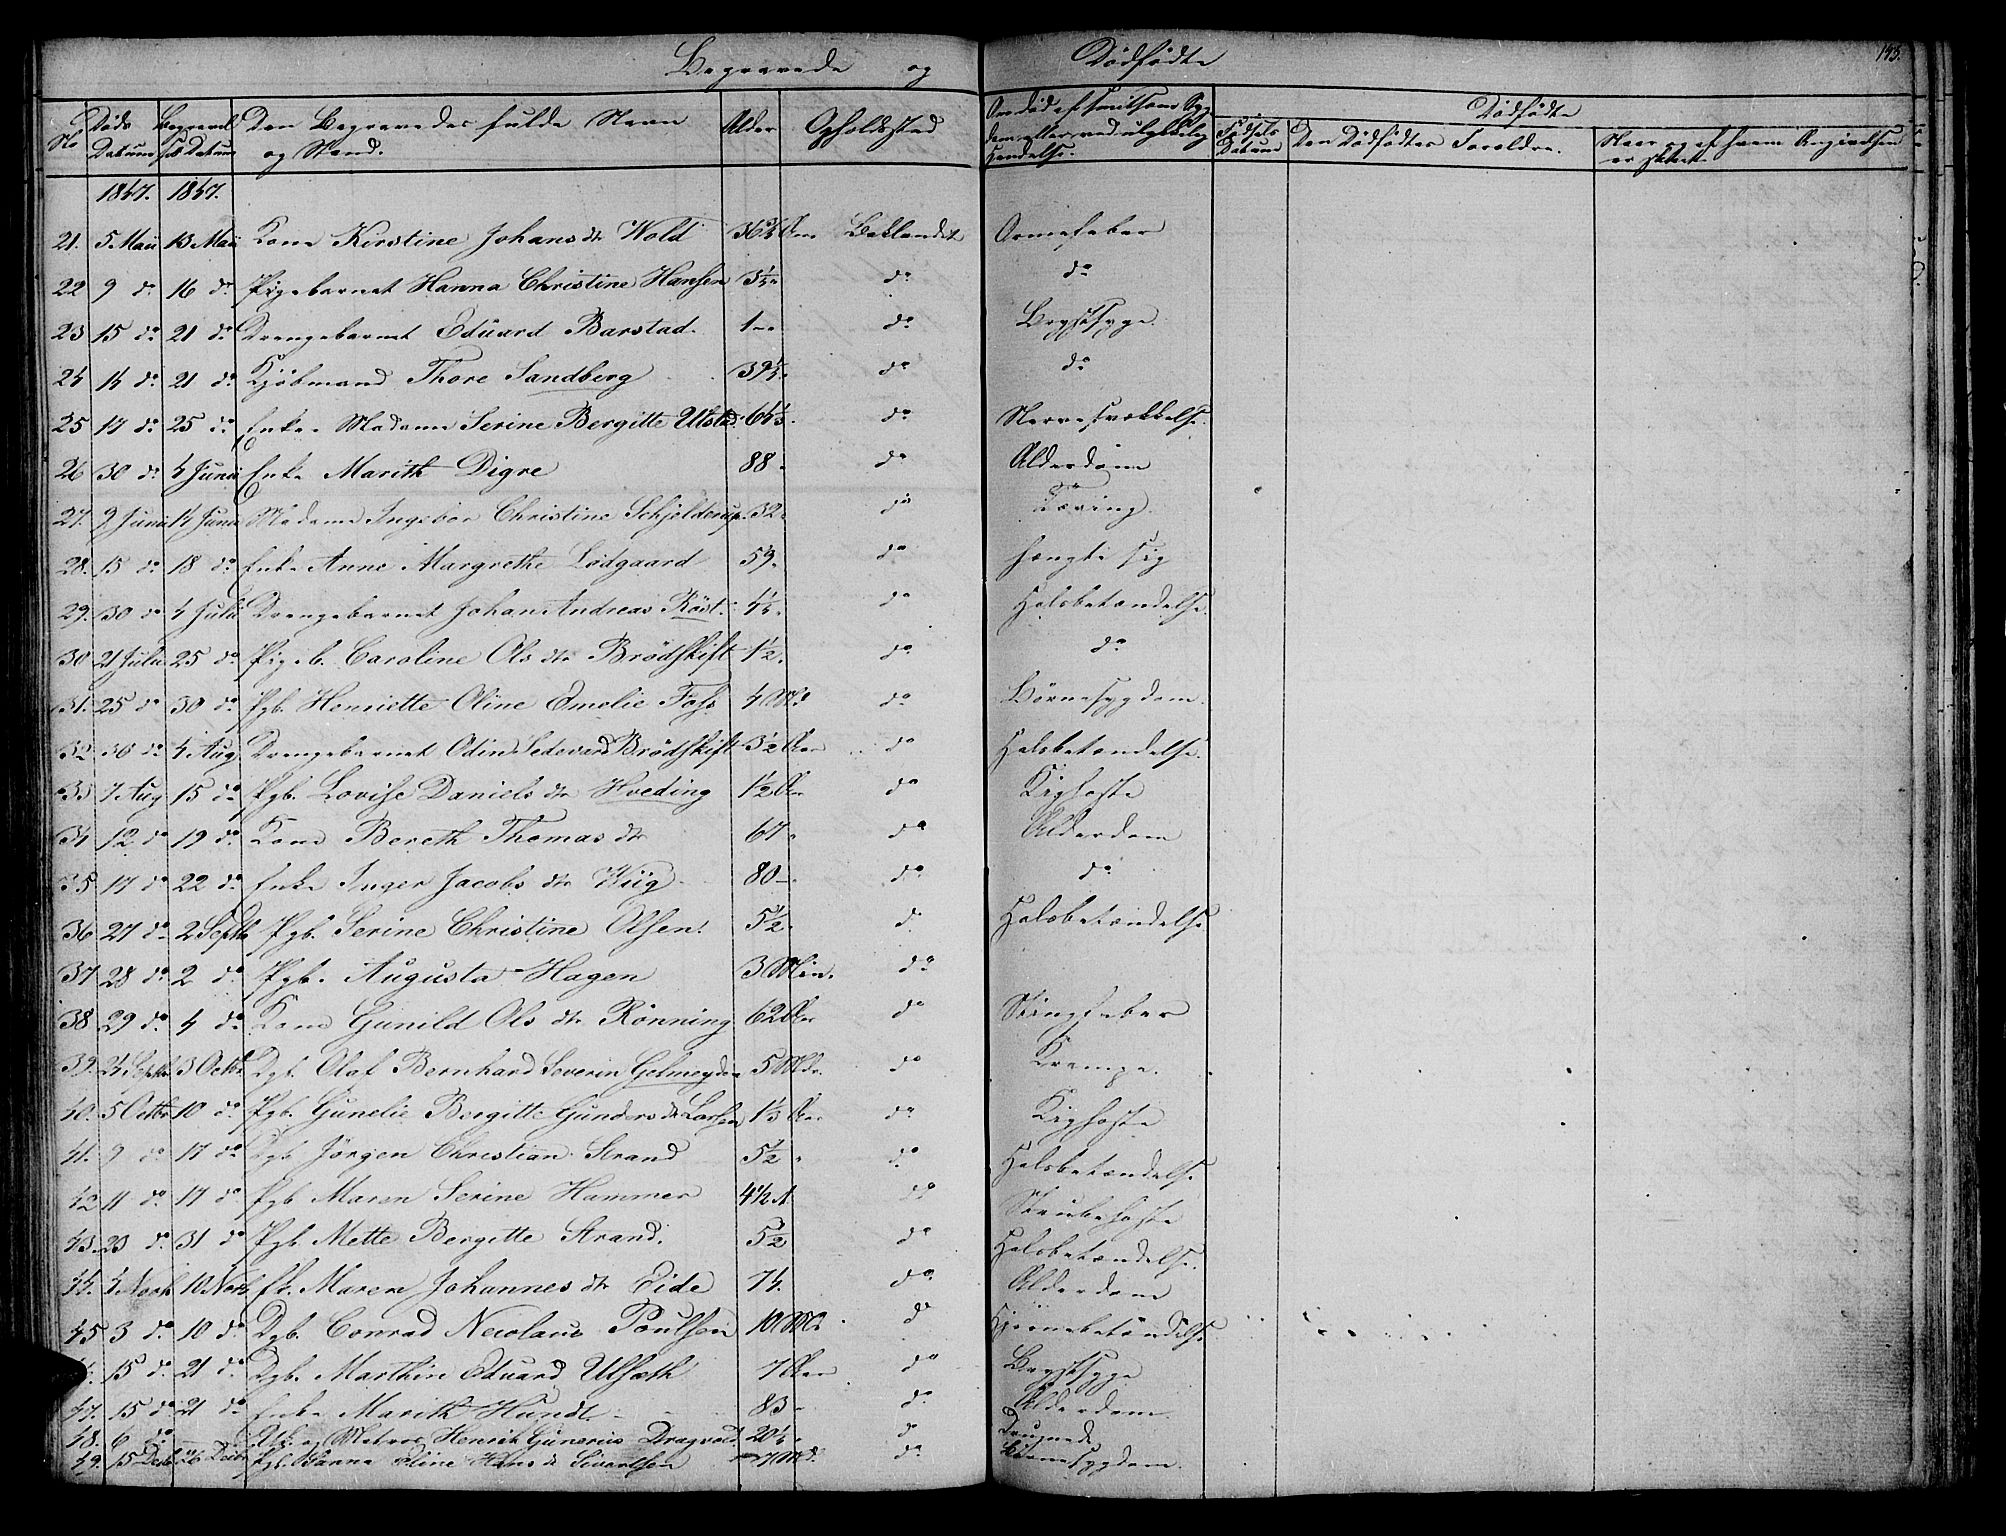 Begravede og Dødfødte
193.
No Døds Datum Begravelses Datum Den Begravedes fulde Navn og Stand. Alder Opholdssted Om død af smitsom Sygdom eller ved ulykkelig Hendelse. Dødfødte
Fødsels Datum Den Dødfødtes Forældre. Naar og af hvem Angivelsen er skeet
1847. 1847.
21. 5 Maii 13 Maii Kone Kirstine Johans dr Wold 36 Aar Baklandet
22 9 do 16 do Pigebarnet Hanna Christine Hansen 3½ do do
23 15 do 21 do Drengebarnet Eduard Barstad. 1 do Brystsyge.
24 14 do 21 do Kjøbmand Thore Sandberg 39½ do do
25 17 do 25 do Enke Madame Serine Bergitte Ulstad do Nervesvækkelse.
26 30 do 4 Junii Enke Marith Digre 88 do Alderdom
27. 9 Junii 14 Junii Madame Ingebor Christine Schjelderup. 32 do Tæring.
28. 15 do 18 do Enke Anne Margrethe Lødgaard 59. do hængte sig
29. 30 do 4 Julii Drengebarnet Johan Andreas Røst. do Halsbetændelse.
30 21 Julii 25 do Pigeb. Caroline Ols dr Brødskift 1½. do do
31. 25 do 30 do Pgb. Henriette Oline Emelie Foss 4 Md do Børnesygdom.
32 30 do 4 Aug Drengebarnet Odin Sedevard Brødskift 3½ Aar do Halsbetændelse.
33 7 Aug 15 do Pgb. Lovise Daniels dr Hveding 1½ Aar do Kighoste
34 12 do 19 do Kone Bereth Thomas dr 67 do Alderdom
35 17 do 22 do Enke Inger Jacobs dr Kiig 80 do do
36 27 do 2 Septb Pgb. Serine Christine Olsen. 5½ do Halsbetændelse
37 28 do 2 do Pgb. Augusta Hagen 3 Min. do
38 29 do 4 do Kone Gunild Ols dr Rønning 62 Aar do
39. 24 Septb 3 Octbr Dgb. Olaf Bernhard Severin Gelmeyden 5 Mdr. do Krampe.
40. 5 Octbr 10 do Pgb. Gunelie Bergitte Gunders dr Larsen 1⅓ Aar do Kighoste
41. 9 do 17 do Dgb Jørgen Christian Strand 5½ do Halsbetændelse
42 11 do 17 do Pgb Maren Serine Hammer 4½ A. do Strubehoste
43. 23 do 31 do Pgb. Mette Bergitte Strand. 5½ do Halsbetændelse.
44. 4 Novb 10 Novb Maren Johannes dr Eide 74. do Alderdom
45 3 do 10 do Dgb. Conrad Nicolaus Poulsen 10 Md do Hjernebetændelse
15 do 21 do Dgb. Marthin Eduard Ulsæth 7 Aar do Brystsyge
47. 15 do 21 do Enke Marith Hundt 83 do Alderdom
48. 6 do Matros Henrik Gunerius Dragvold. 20½ do Druknede
49. 15 Decbr 26 Decbr Pgb. Hanna Oline Hans dr Sivertsen 7 Md. do Børnesygdom.